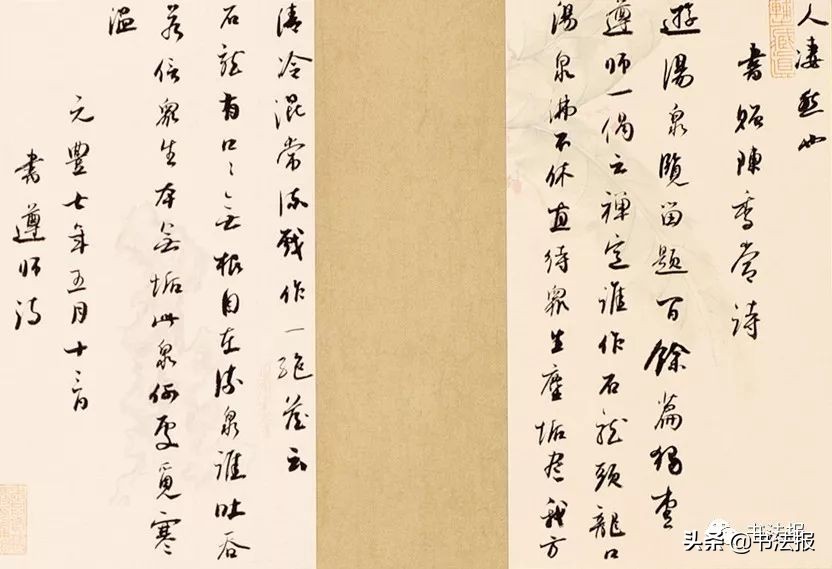 人凄然也
書贈陳季常詩
遊湯泉覽留題百餘篇獨愛
遵師一偈云禪定誰作石龍頭龍口
湯泉沸不休直待衆生塵垢盡我方
清冷混常流戲作一絕答云
石龍有口〻無根自在流泉誰吐吞
若信衆生本無垢此泉何處覓寒
温
元豐七年五月十三日
書遵師詩
书法报
头条 @书法报